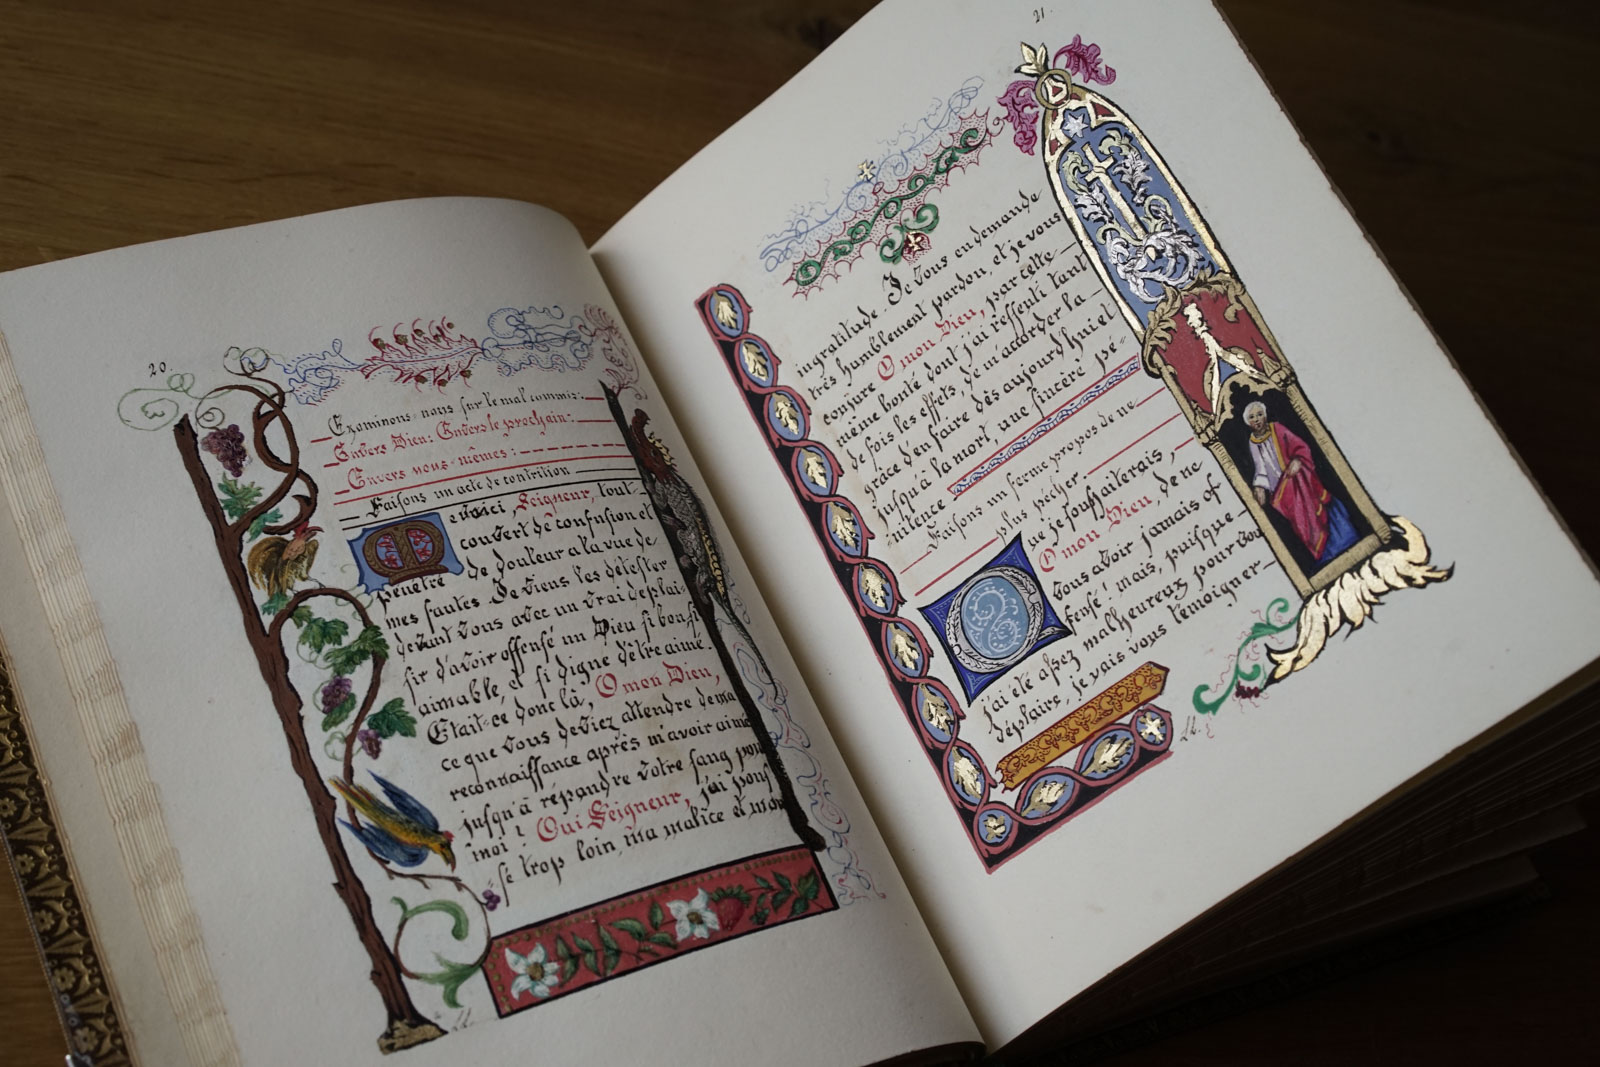 20.
Examinons-nous sur le mal commis:
Envers Dieu: Envers le prochain:
Envers nous-mêmes:
Faisons un acte de contrition
Me voici, Seigneur, tout
couvert de confusion et
pénétré de douleur a la vue de
mes fautes. Je viens les détester
devant vous avec un vrai déplai-
sir d'avoir offensé un Dieu si bon, si
aimable, et si digne d'être aimé.
Etait-ce donc là, O mon Dieu,
ce que vous deviez attendre de ma
reconnaissance après m'avoir aimé
jusqu'à répandre votre sang pour
moi? Oui Seigneur, j'ai pous-
sé trop loin, ma malice et mon
21.
ingratitude. Je vous en demande
très humblement pardon, et je vous
conjure O mon Dieu, par cette
même bonté dont j'ai ressenti tant
de fois les effets, de m'accorder la
grâce d'en faire dès aujourd'hui et
jusqu'à la mort, une sincère pé-
nitence
Faisons un ferme propos de ne
plus pécher
Que je souhaiterais,
O mon Dieu, de ne
vous avoir jamais of
fensé! mais, puisque
j'ai été assez malheureux pour vous
déplaire, je vais vous témoigner